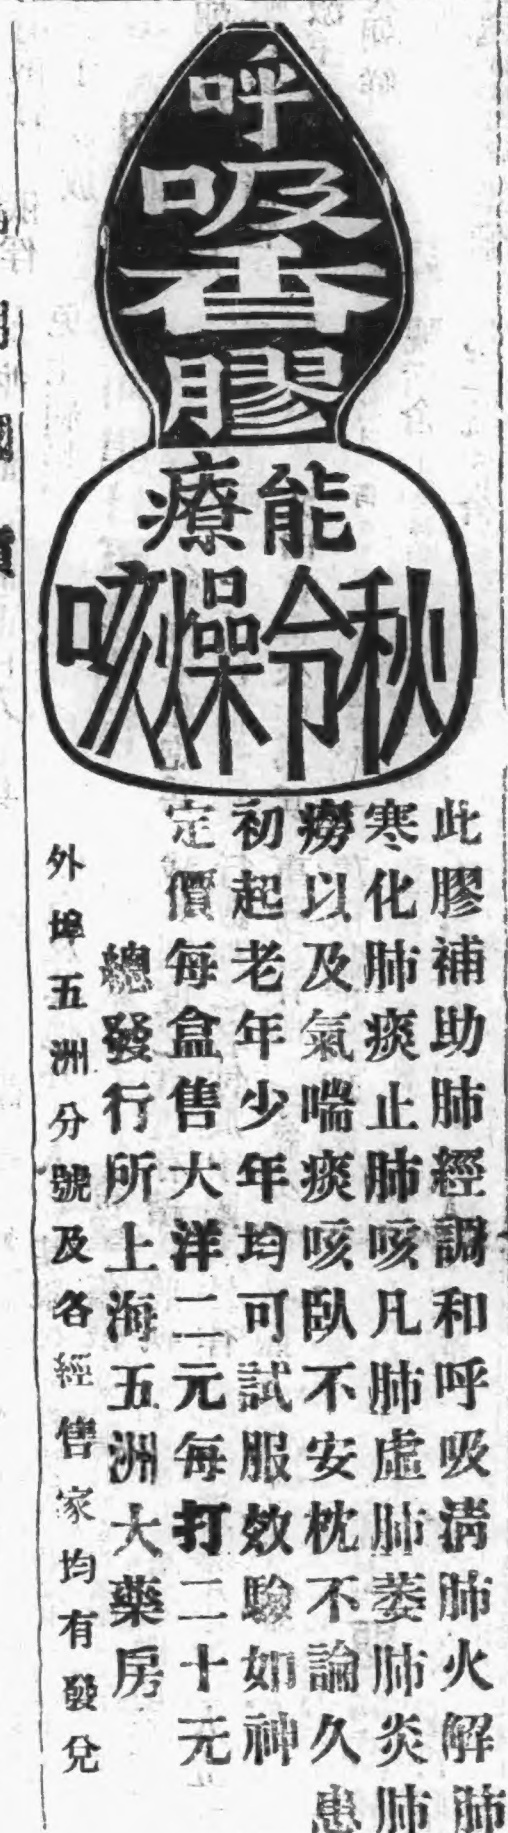 呼吸香膠
能療
秋令燥咳
此膠補助肺經調和呼吸淸肺火解肺
寒化肺痰止肺咳凡肺虛肺萎肺炎肺
癆以及氣喘痰咳臥不安枕不論久患
初起老年少年均可試服效驗如神
定價每盒售大洋二元每打二十元
總發行所上海五洲大藥房
外埠五洲分號及各經售家均有發兌